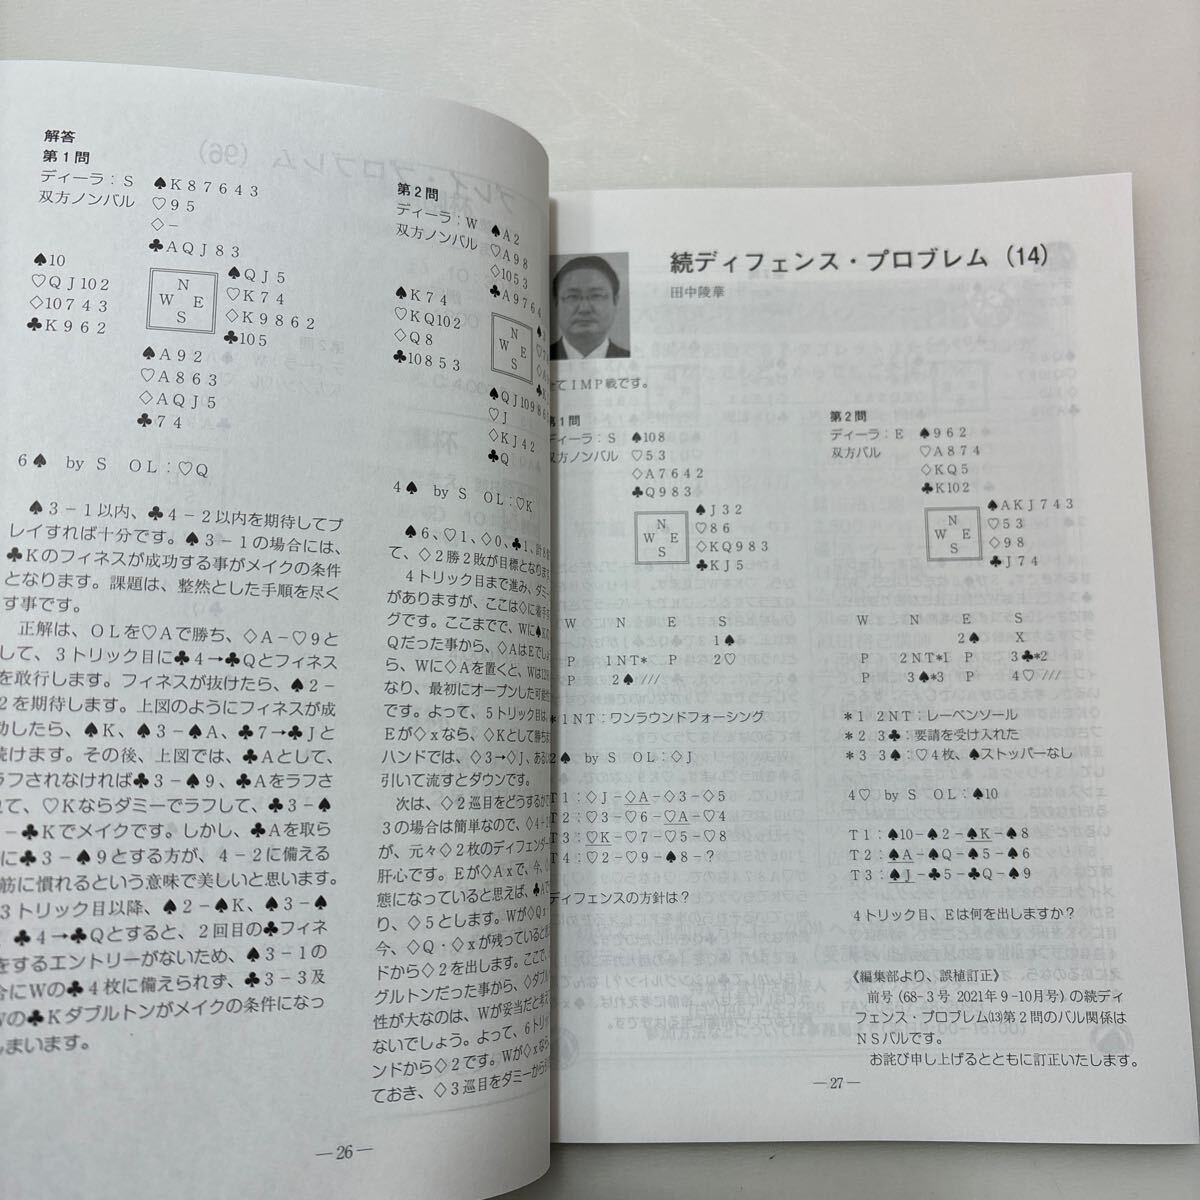 解答
第1問
ディーラ：S ♠K87643
双方ノンバル ♡95
◇−
♣AQJ83
♠10
♡QJ102
◇10743
♣K962
N
W E
S
♠QJ5
♡K74
◇K9862
♣105
♠A92
♡A863
◇AQJ5
♣74
6♠ by S OL:♡Q
♠3−1以内、♣4−2以内を期待してプ
レイすれば十分です。♠3−1の場合には、
♣Kのフィネスが成功する事がメイクの条件
となります。課題は、整然とした手順を尽く
す事です。
正解は、OLを♡Aで勝ち、◇A−♡9と
して、3トリック目に♣4→♣Qとフィネス
を敢行します。フィネスが抜けたら、♠2−
2を期待します。上図のようにフィネスが成
功したら、♠K、♠3−♠A、♣7→♣Jと
続けます。その後、上図では、♣Aとして、
ラフされなければ♣3−♠9、♣Aをラフさ
れて、♡Kならダミーでラフして、♣3−♠
−♣Kでメイクです。しかし、♣Aを取ら
に♣3−♠9とする方が、4−2に備える
筋に慣れるという意味で美しいと思います。
3トリック目以降、♠2−♠K、♠3−♠
♣4→♣Qとすると、2回目の♣フィネ
をするエントリーがないため、♠3−1の
合にWの♣4枚に備えられず、♣3−3及
Wの♣Kダブルトンがメイクの条件になっ
しまいます。
—26—
第2問
ディーラ：W ♠A2
双方ノンバル ♡A98
◇1053
♣A9764
♠K74
♡KQ102
◇Q8
♣10853
N
W E
S
♠QJ109
♡J
◇KJ42
♣Q
4♠ by S OL:♡K
♠6、♡1、◇0、♣1、
て、◇2勝2敗が目標となります
4トリック目まで進み、ダミー
がありますが、ここは◇に着手
グです。ここまでで、Wに♠K
Qだった事から、◇AはEでし
ら、Wに◇Aを置くと、Wは12
なり、最初にオープンした可能
です。よって、5トリック目は、
Eが◇xなら、◇Kとして勝ち
ハンドでは、◇3→◇J、ある
引いて流すとダウンです。
次は、◇2巡目をどうするかで
3の場合は簡単なので、◇4−2
が、元々◇2枚のディフェンダー
肝心です。Eが◇Axで、今、
態になっていると思えば、♣Aで
り、◇5とします。Wが◇Qx
今、◇Q・◇xが残っていると
ドから◇2を出します。ここで、
グルトンだった事から、◇ダブル
性が大なのは、Wが妥当だと考え
ないでしょう。よって、6トリッ
ンドから◇2です。Wが◇xなら
ておき、◇3巡目をダミーから
続ディフェンス・プロブレム（14）
田中陵華
てIMP戦です。
第1問
ディーラ：S ♠108
双方ノンバル ♡53
◇A7642
♣Q983
N
W E
S
♠J32
♡86
◇KQ983
♣KJ5
W N E S
1♠
P 1NT* P 2♡
P 2♠///
*1NT：ワンラウンドフォーシング
2♠ by S OL:◇J
T1:◇J−◇A−◇3−◇5
T2:♡3−♡6−♡A−♡4
T3:♡K−♡7−♡5−♡8
T4:♡2−♡9−♠8−?
ディフェンスの方針は？
第2問
ディーラ：E ♠962
双方バル ♡A874
◇KQ5
♣K102
N
W E
S
♠AKJ743
♡53
◇98
♣J74
W N E S
2♠ X
P 2NT*1 P 3♣*2
P 3♠*3 P 4♡///
*1 2NT：レーベンソール
*2 3♣：要請を受け入れた
*3 3♠：♡4枚、♠ストッパーなし
4♡ by S OL:♠10
T1:♠10−♠2−♠K−♠8
T2:♠A−♠Q−♠5−♠6
T3:♠J−♣5−♣Q−♠9
4トリック目、Eは何を出しますか？
《編集部より、誤植訂正》
前号（68-3号 2021年9-10月号）の続ディ
フェンス・プロブレム⒀第2問のバル関係は
NSバルです。
お詫び申し上げるとともに訂正いたします。
—27—